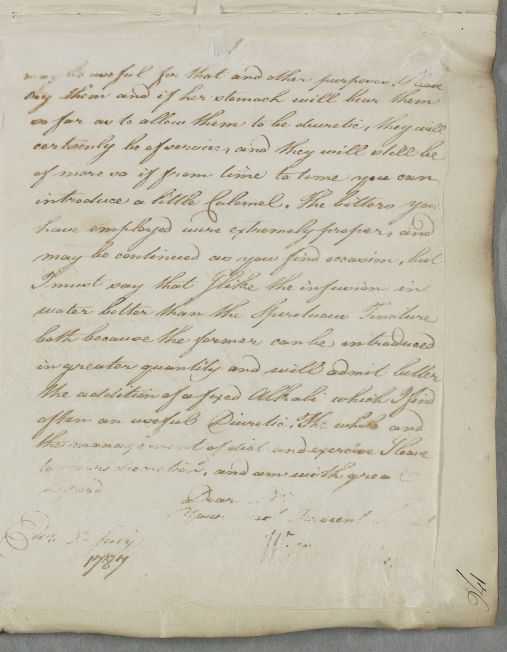 may be useful for that and other purposes. Pleace
try them and if her stomach will bear them
so far as to allow them to be diuretic, they will
certainly be of service, and they will still be
of more so if from time to time you can
introduce a little Calomel. The bitters you
have employed were extremely proper, and
may be continued as you find occasion, but
I must say that I like the infusion in
water better than the Spirituous Tincture
both because the former can be introduced
in greater quantity and will admit better
the addition of a fixed Alkali which I find
often an useful Diuretic. The whole and
the management of diet and exercise I leave
to your discretion, and am with great
regard
Dear Sir
Your
Edin July
1787